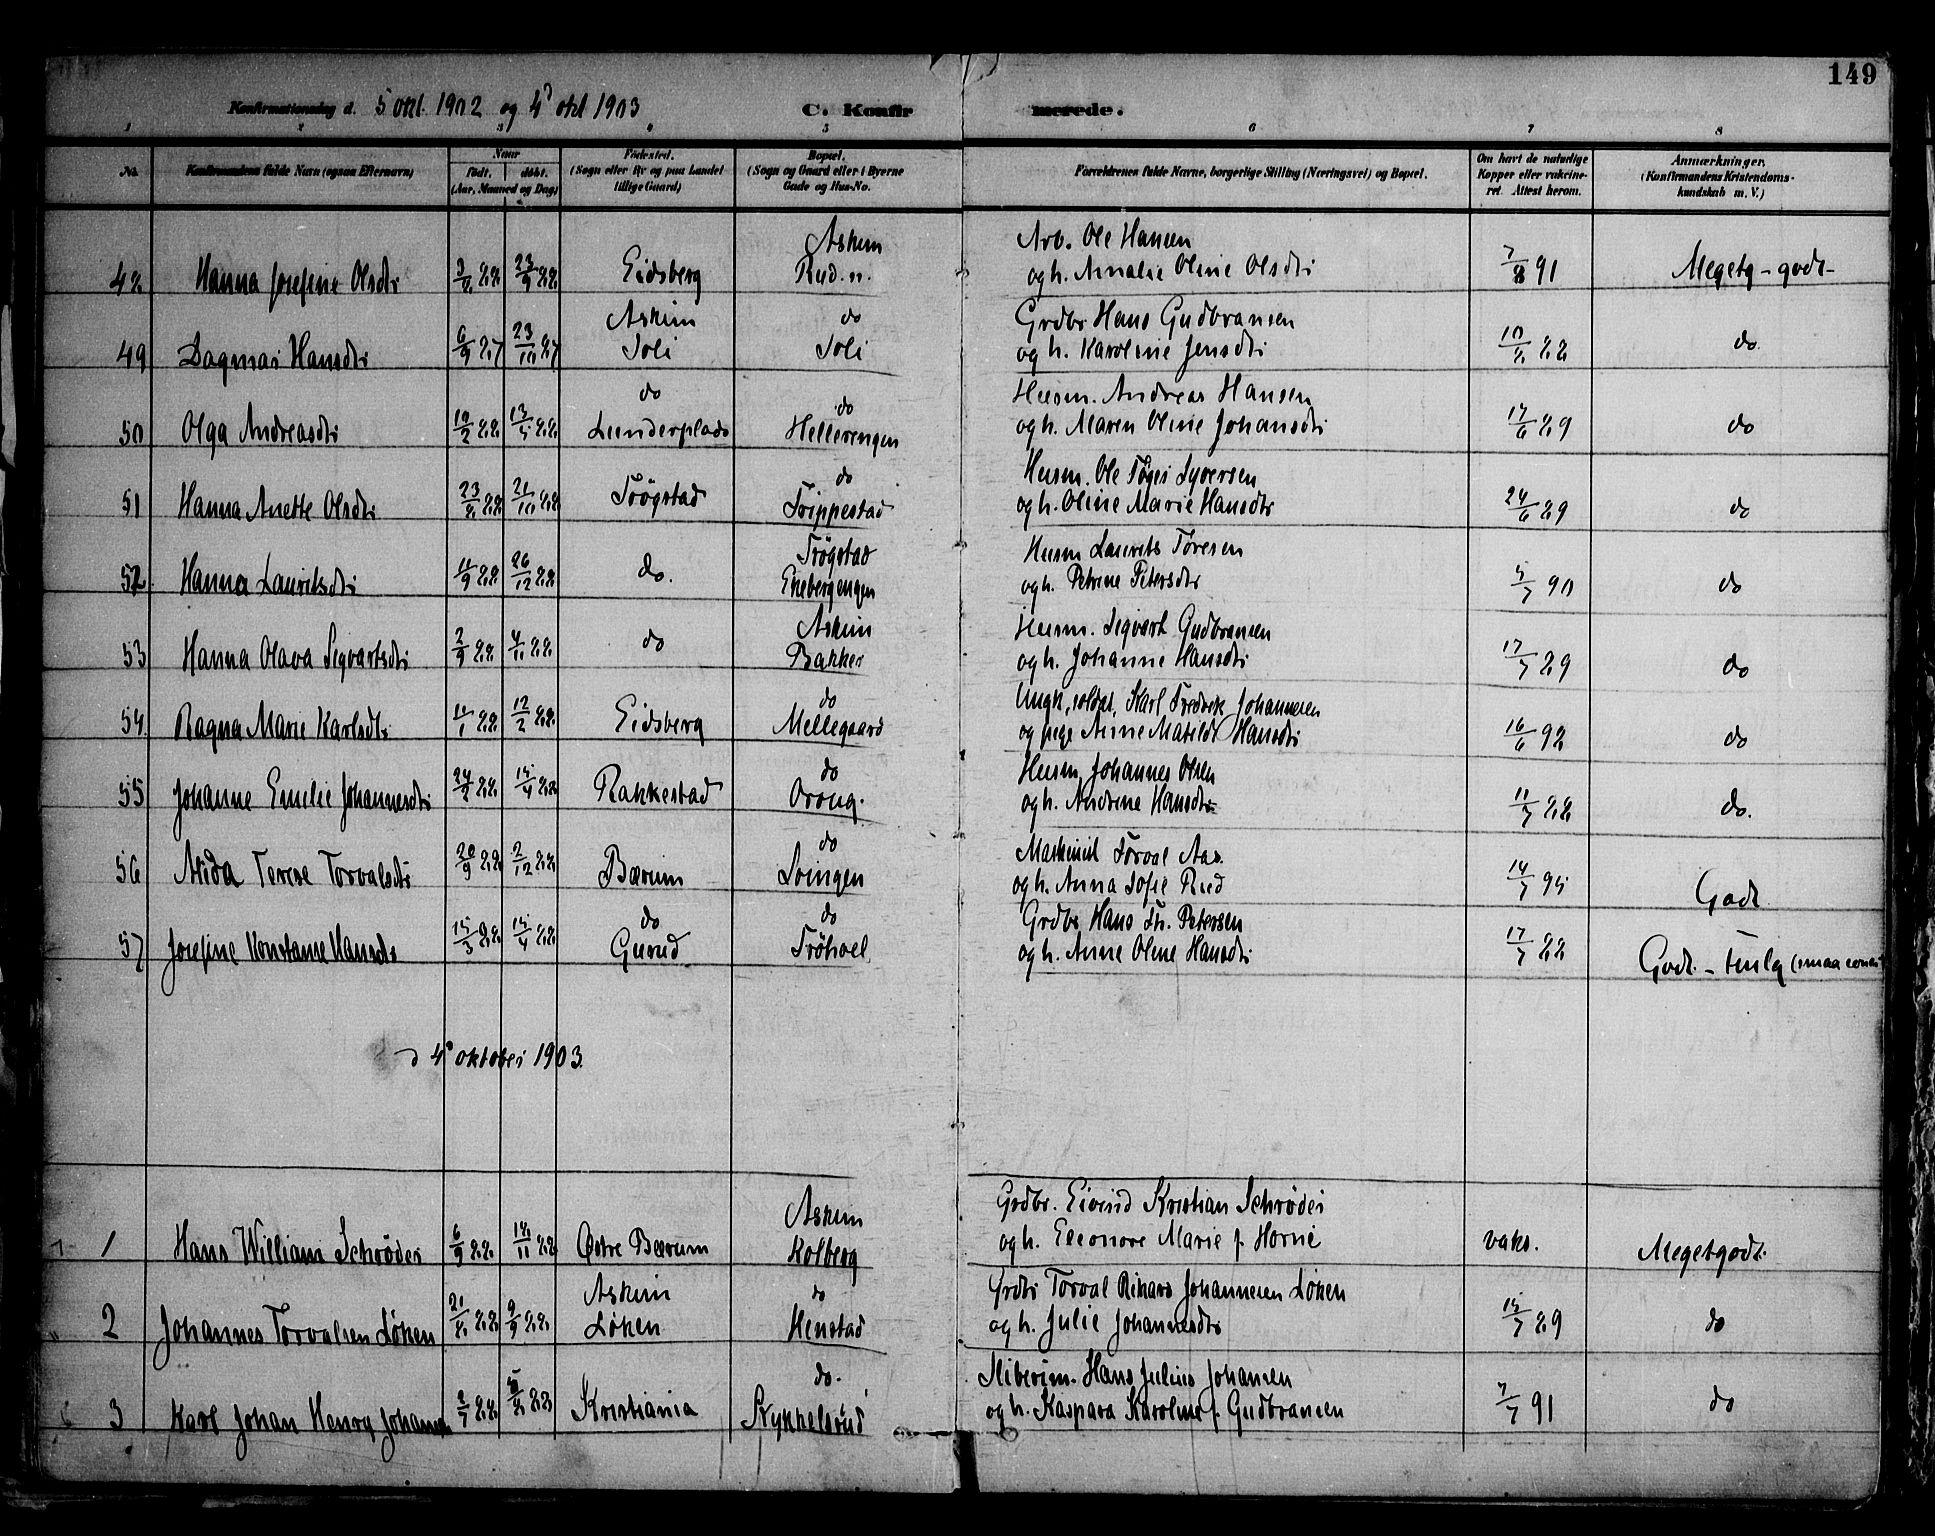 149
Konfirmationsdag d. 5 okt. 1902 og 4' okt 1903 C. Konfirmerede.
1 2 3 4 5 6 7 8
No. Konfirmandens fulde Navn (ogsaa Efternavn) Naar født. døbt. (Aar, Maaned og Dag) Fødested. (Sogn eller By og paa Landet tillige Gaard) Bopæl. (Sogn og Gaard eller i Byerne Gade og Hus-No. Forældrenes fulde Navne, borgerlige Stilling (Næringsvei) og Bopæl. Om havt de naturlige Kopper eller vakcineret. Attest herom. Anmærkninger, (Konfirmandens Kristendomskundskab m. V.)
Askim Arb. Ole Hansen
48 Hanna Josefine Olsdtr 3/8 88 23/9 88 Eidsberg Rud. n. og h. Amalie Oline Olsdtr 7/8 91 Megetg - godt -
Askim do Grdbr Hans Gudbransen
49 Dagmar Hansdtr 6/9 87 23/10 87 Soli Soli og h. Karoline Jensdtr 10/8 88 do.
do do Husm. Andreas Hansen
50 Olga Andreasdtr 10/2 88 13/5 88 Lunderplads Hellerengen og h. Maren Oline Johansdtr 17/6 89 do
do Husm. Ole Tøger Syversen
51 Hanna Anette Olsdtr 23/8 88 21/10 88 Trøgstad Trippestad og h. Oline Marie Hansdtr 24/6 89 do
Trøgstad Husm Laurits Toresen
52 Hanna Lauritsdtr 11/9 88 26/12 88 do. Ekebergengen og h. Petrine Petersdtr 5/7 90 do
Askim Husm. Sigvart Gudbransen
53 Hanna Olava Sigvartsdtr 2/9 88 4/11 88 do Bakker og h. Johanne Hansdtr 17/7 89 do
do Ungk, soldat, Karl Fredrik Johannesen
54 Ragna Marie Karlsdtr 11/1 88 12/2 88 Eidsberg Mellegaard og pige Anne Matilde Hansdtr 16/6 92 do
do Husm, Johannes Olsen
55 Johanne Emilie Johannesdtr 24/2 88 15/4 88 Rakkestad Oroug. og h. Andrine Hansdtr 11/7 88 do.
do Maskinist Torval Aas.
56 Alida Terese Torvalsdtr 20/9 88 2/12 88 Bærum Svingen og h. Anna Sofie Rud 14/7 95 Godt
do do Grdbr Hans Th. Petersen
57 Josefine Konstanse Hansdtr 15/3 88 15/4 88 Gurud Trøhael og h. Anne Oline Hansdtr 17/7 88 Godt. -
d 4' oktober 1903.
Askim Grdbr. Eivind Kristian Schrøder
1 Hans William Schrøder 6/9 88 18/11 88 Østre Bærum Kolberg og h. Eleonore Marie f. Horne vaks. Megetgodt.
Askim do Grdbr Torval Rikard Johannesen Løken
2 Johannes Torvalsen Løken 21/8 88 9/9 88 Løken Henstad og h. Julie Johannesdtr 15/7 89 do
do. Sliberim. Hans Julius Johansen
3 Karl Johan Henry Johansen 2/7 88 Kristiania Stykkelsrud og h. Kaspara Karoline f. Gudbransen 7/7 91 do